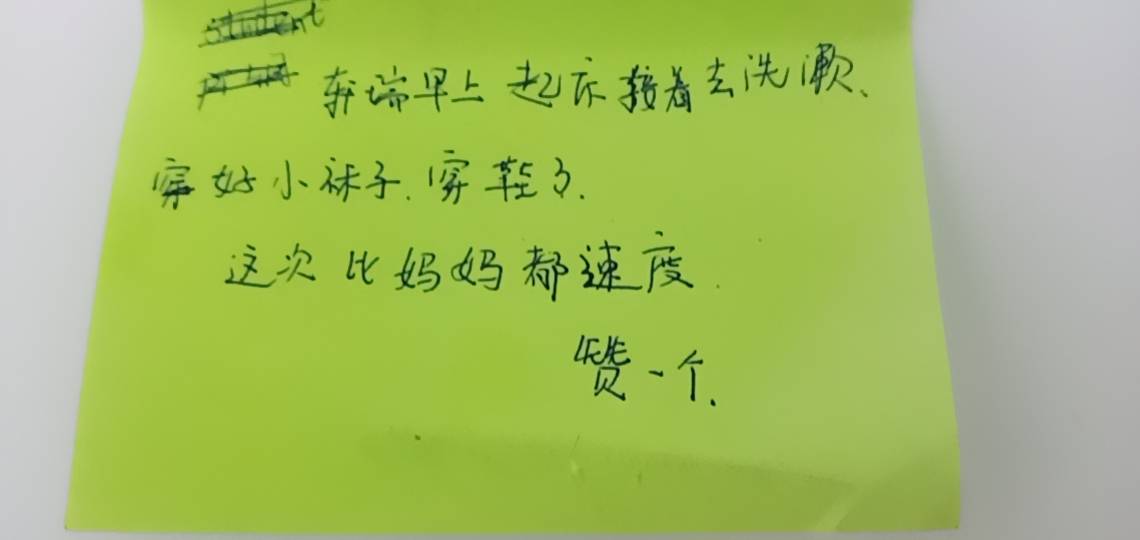 student
瑞早上起床接着去洗漱、
穿好小袜子.穿鞋了.
这次比妈妈都速度.
赞一个.